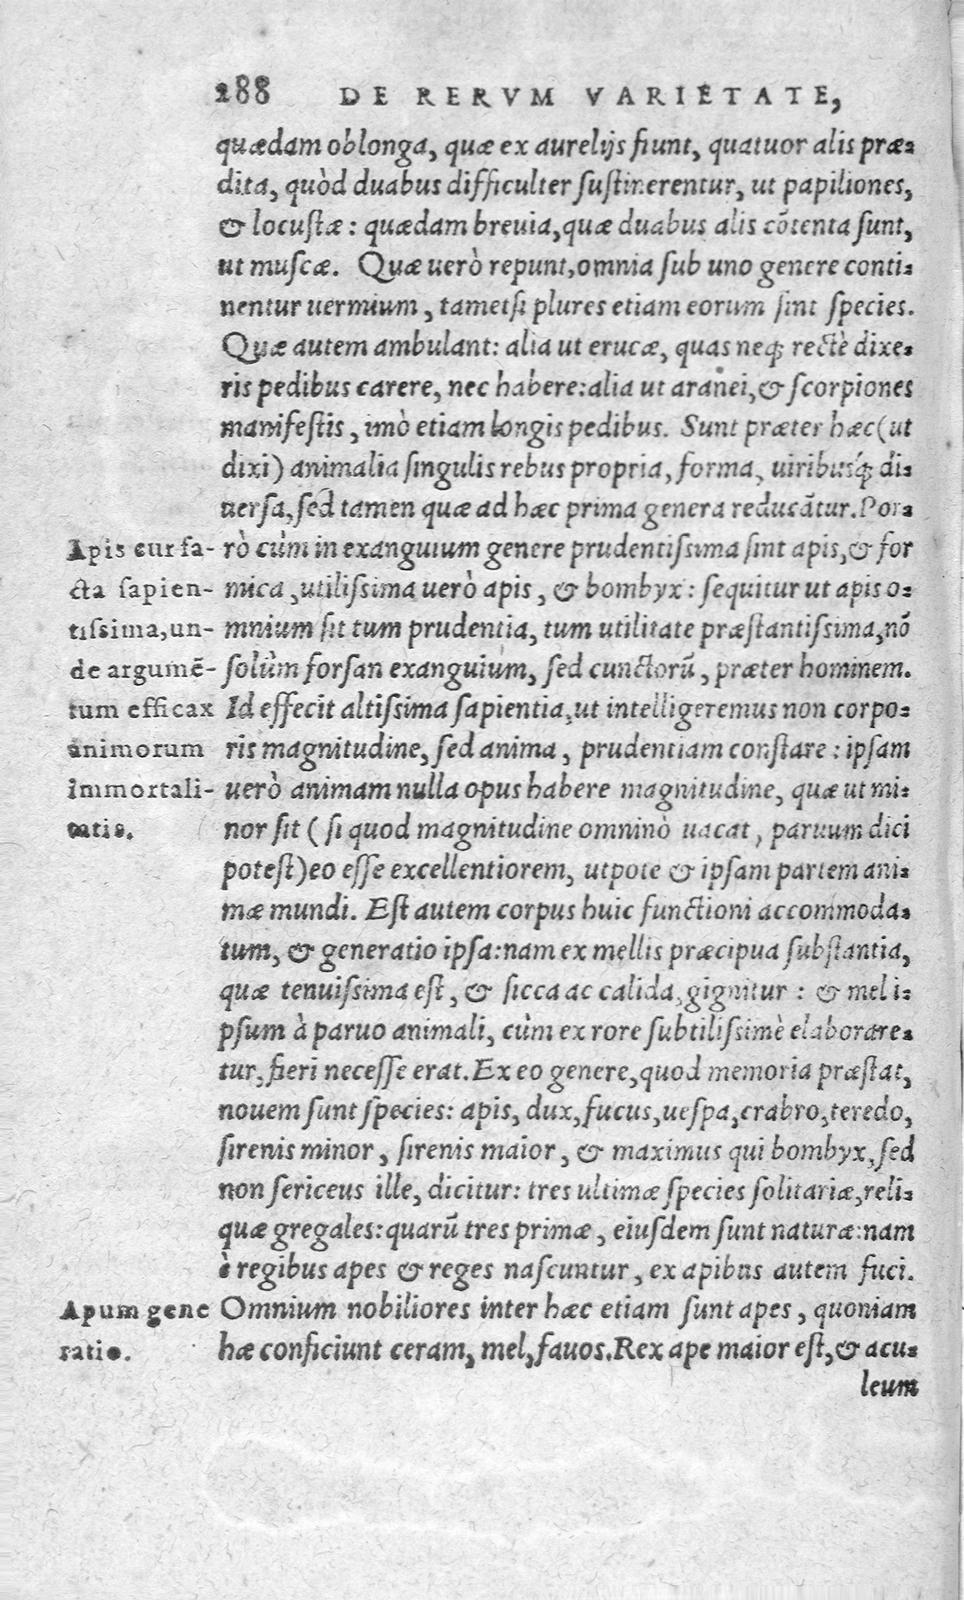 288 DE RERVM VARIETATE,
quædam oblonga, quæ ex aurelijs fiunt, quatuor alis præ-
dita, quòd duabus difficulter ſuſtinerentur, ut papiliones,
& locuſtæ: quædam breuia, quæ duabus alis cõtenta ſunt,
ut muſcæ. Quæ uerò repunt, omnia ſub uno genere conti-
nentur uermium, tametſi plures etiam eorum ſint ſpecies.
Quæ autem ambulant: alia ut erucæ, quas neq; rectè dixe-
ris pedibus carere, nec habere: alia ut aranei, & ſcorpiones
manifeſtis, imò etiam longis pedibus. Sunt præter hæc (ut
dixi) animalia ſingulis rebus propria, forma, uiribusq́; di-
uerſa, ſed tamen quæ ad hæc prima genera reducãtur. Por-
rò cùm in exanguium genere prudentiſsima ſint apis, & for
mica, utiliſsima uerò apis, & bombyx: ſequitur ut apis o-
mnium ſit tum prudentia, tum utilitate præſtantiſsima, nõ
ſolùm forſan exanguium, ſed cunctorũ, præter hominem.
Id effecit altiſsima ſapientia, ut intelligeremus non corpo-
ris magnitudine, ſed anima, prudentiam conſtare: ipſam
uerò animam nulla opus habere magnitudine, quæ ut mi-
nor ſit (ſi quod magnitudine omninò uacat, paruum dici
poteſt) eo eſſe excellentiorem, utpote & ipſam partem ani-
mæ mundi. Eſt autem corpus huic functioni accommoda-
tum, & generatio ipſa: nam ex mellis præcipua ſubſtantia,
quæ tenuiſsima eſt, & ſicca ac calida, gignitur: & mel i-
pſum à paruo animali, cùm ex rore ſubtiliſsimè elaborare-
tur, fieri neceſſe erat. Ex eo genere, quod memoria præſtat,
nouem ſunt ſpecies: apis, dux, fucus, ueſpa, crabro, teredo,
ſirenis minor, ſirenis maior, & maximus qui bombyx, ſed
non ſericeus ille, dicitur: tres ultimæ ſpecies ſolitariæ, reli-
quæ gregales: quarũ tres primæ, eiuſdem ſunt naturæ: nam
è regibus apes & reges naſcuntur, ex apibus autem fuci.
Omnium nobiliores inter hæc etiam ſunt apes, quoniam
hæ conficiunt ceram, mel, fauos. Rex ape maior eſt, & acu-
leum
Apis cur fa-
cta sapien-
tissima, un-
de argumẽ-
tum efficax
animorum
immortali-
tatis.
Apum gene
ratio.